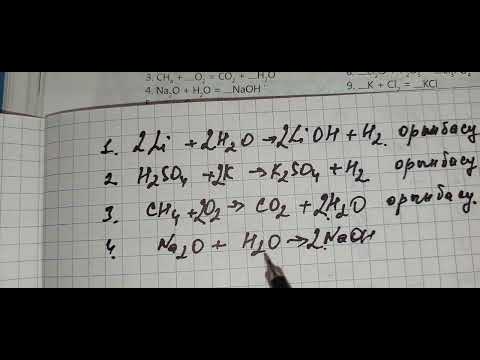 3. CH₄ + __O₂ = CO₂ + __H₂O
4. Na₂O + H₂O = __NaOH
9. __K + Cl₂ = __KCl
1. 2Li + 2H₂O → 2LiOH + H₂. орынбасу
2. H₂SO₄ + 2K → K₂SO₄ + H₂ орынбасу
3. CH₄ + 2O₂ → CO₂ + 2H₂O орынбасу.
4. Na₂O + H₂O → 2NaOH